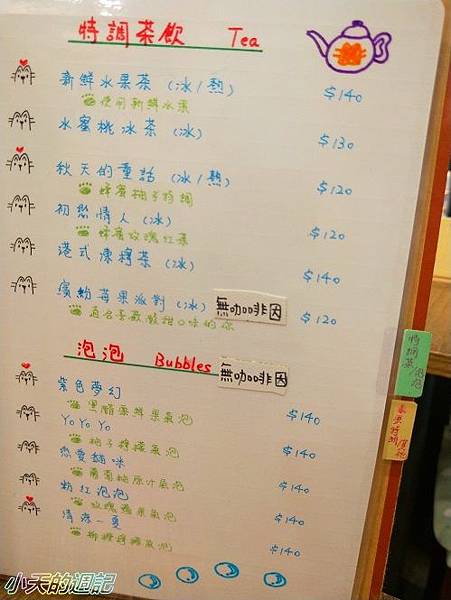 特調茶飲 Tea
新鮮水果茶 (冰/熱) $140
使用新鮮水果
水蜜桃冰茶 (冰) $130
秋天的童話 (冰/熱) $120
蜂蜜柚子特調
初戀情人 (冰) $120
蜂蜜玫瑰紅茶
港式凍檸茶 (冰) $140
繽紛莓果派對 (冰) 無咖啡因 $120
適合喜歡酸甜口味的你
泡泡 Bubbles 無咖啡因
紫色夢幻 $140
黑醋栗蘋果氣泡
YoYoYo $140
柚子檸檬氣泡
戀愛貓咪 $140
葡萄柚原汁氣泡
粉紅泡泡 $140
玫瑰蘋果氣泡
清涼一夏 $140
柳橙檸檬氣泡
特調茶/泡泡
小天的週記